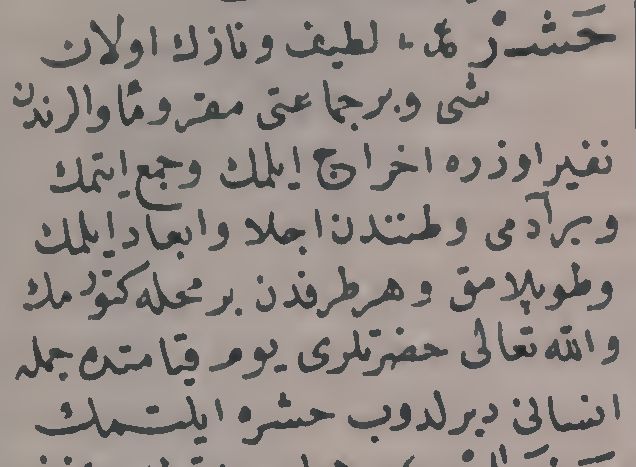 حشر عد، لطيف ونازك اولان
شى وبر جماعتى مقر وماوالرندن
نفير اوزره اخراج ايلمك وجمع ايتمك
وبر آدمى وطنندن اجلا وابعاد ايلمك
وطوپلامق وهر طرفدن بر محله كتورمك
والله تعالى حضرتلرى يوم قيامتده جمله
انسانى ديرلدوب حشره ايلتمك